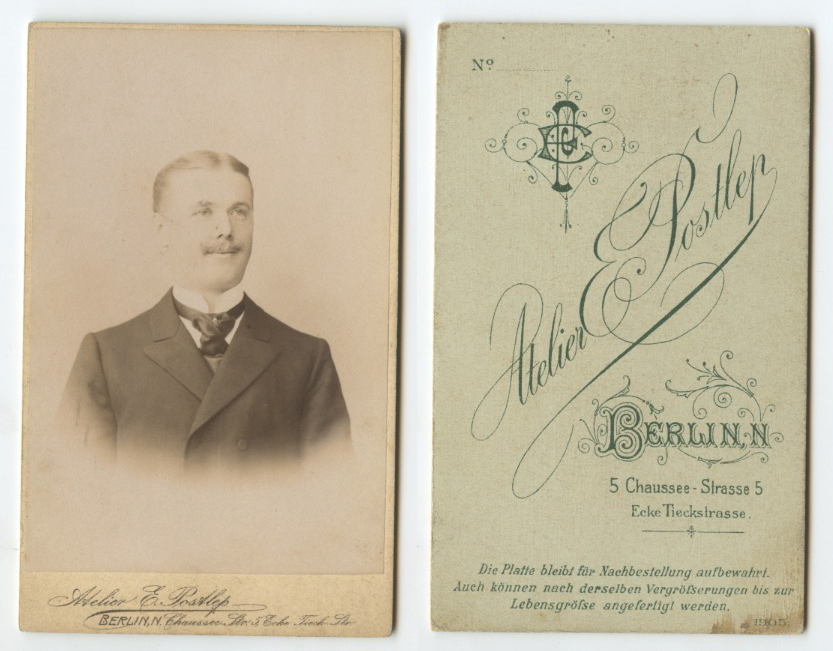 Atelier E. Postlep
BERLIN, N. Chaussee-Str. 5 Ecke Tieck-Str.
Nº
Atelier E Postlep
BERLIN, N
5 Chaussee-Strasse 5
Ecke Tieckstrasse.
Die Platte bleibt für Nachbestellung aufbewahrt.
Auch können nach derselben Vergröfserungen bis zur
Lebensgröfse angefertigt werden.
1905.